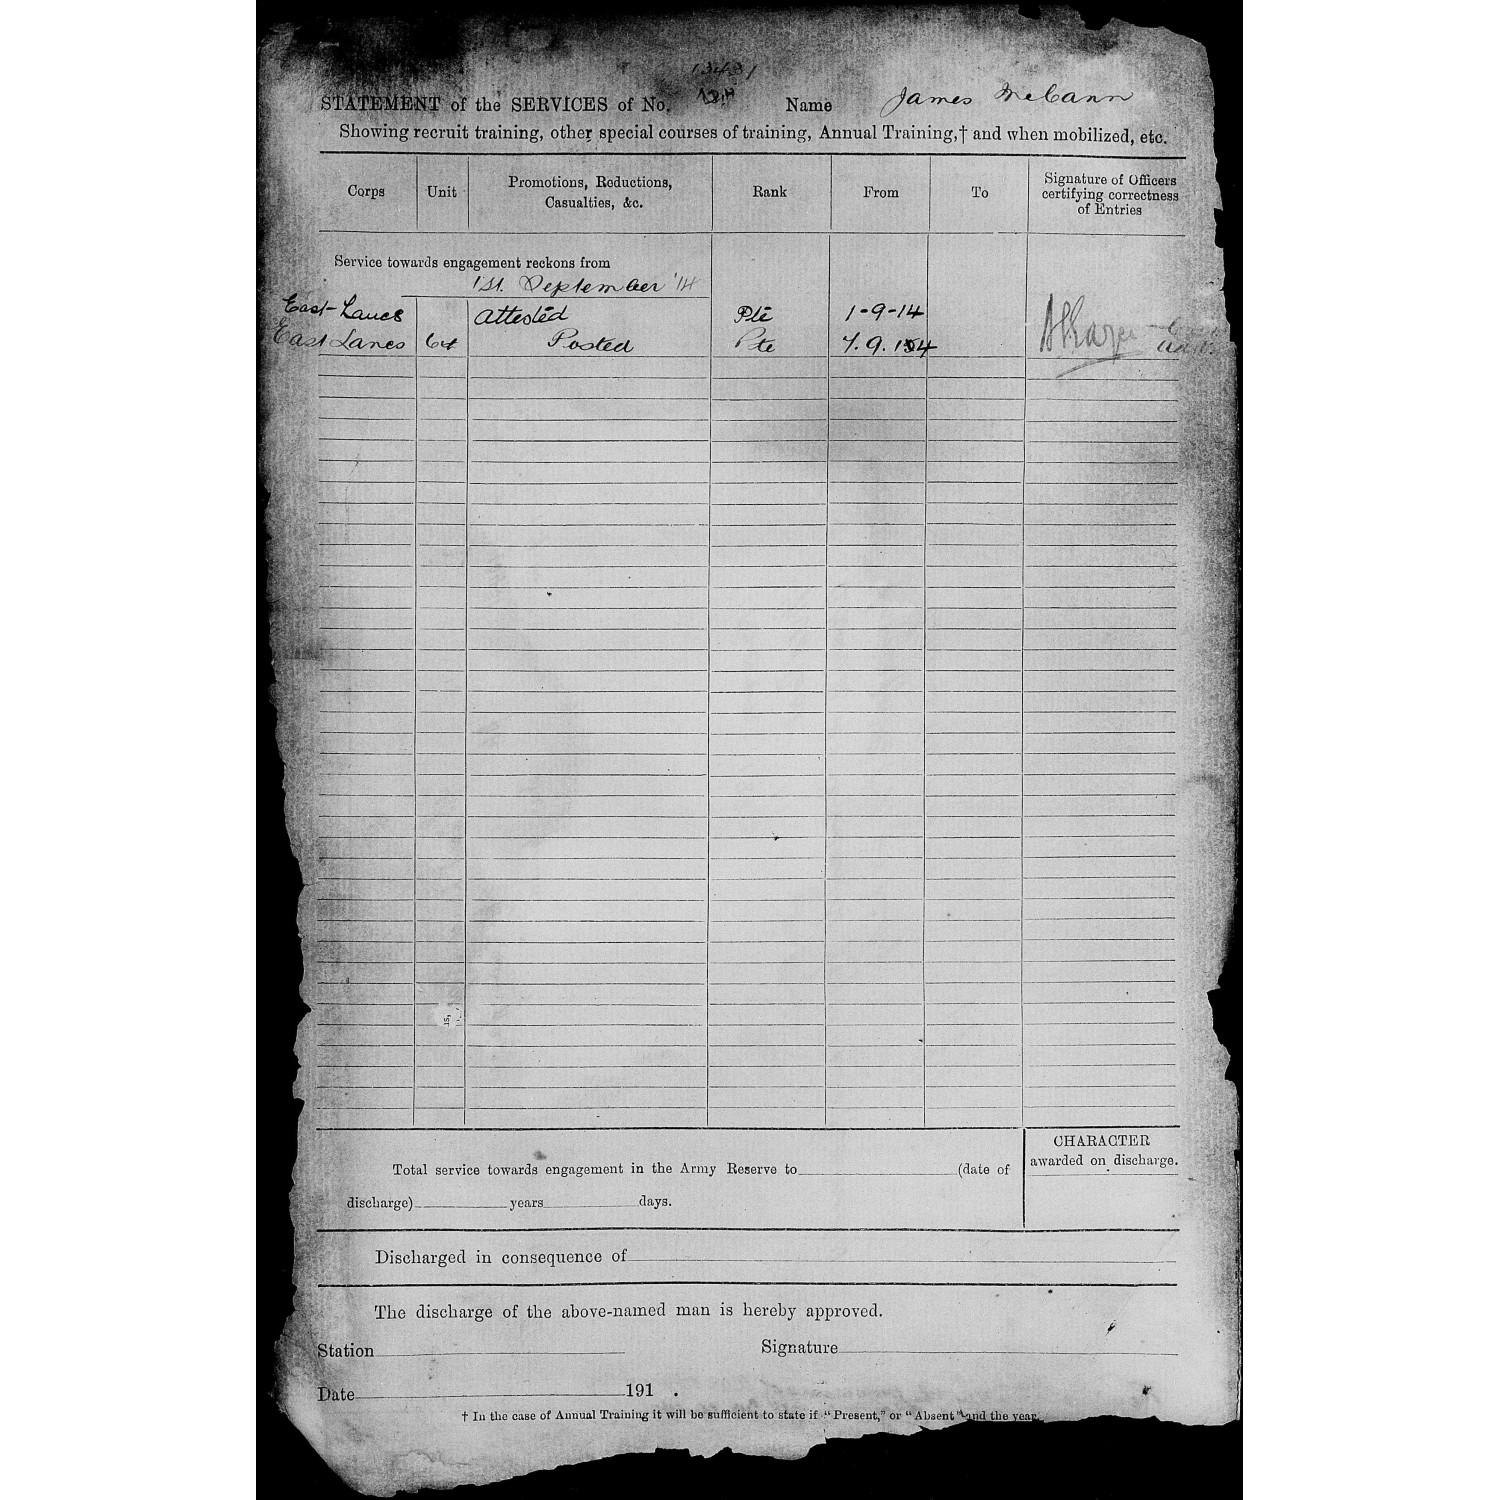 13481
STATEMENT of the SERVICES of No. Name James McCann
Showing recruit training, other special courses of training, Annual Training,† and when mobilized, etc.
Corps Unit Promotions, Reductions, Casualties, &c. Rank From To Signature of Officers certifying correctness of Entries
Service towards engagement reckons from
1st September '14
East-Lancs attested Pte 1-9-14
East Lancs 6th Posted Pte 7.9.14
Total service towards engagement in the Army Reserve to (date of
discharge) years days.
CHARACTER
awarded on discharge.
Discharged in consequence of
The discharge of the above-named man is hereby approved.
Station Signature
Date 191 .
† In the case of Annual Training it will be sufficient to state if "Present," or "Absent" and the year.